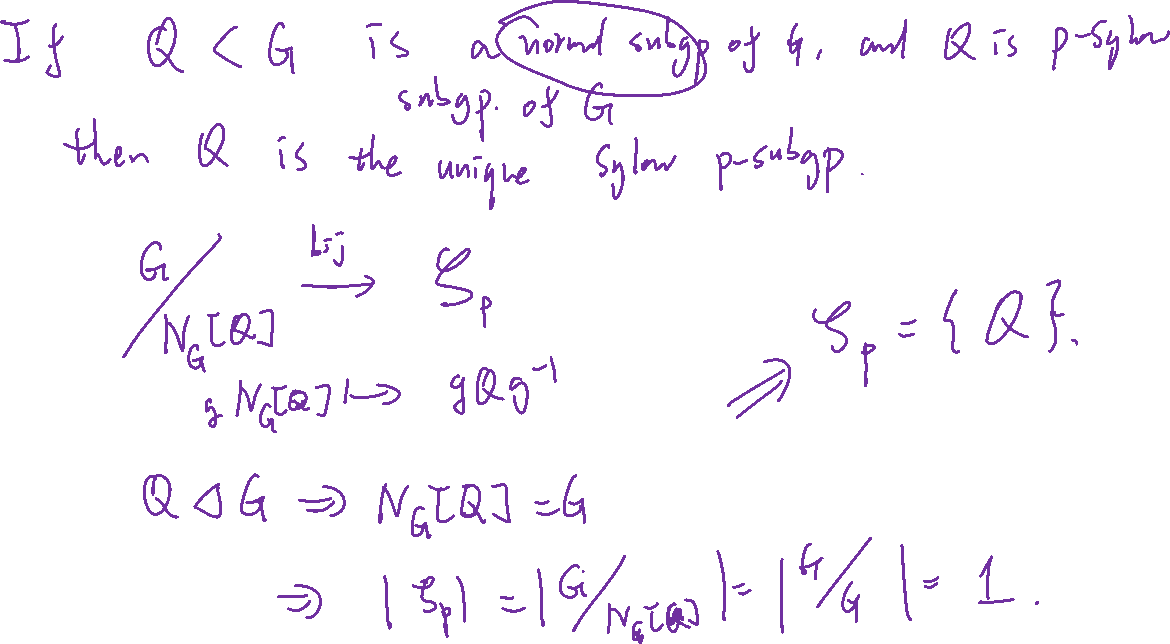 If Q < G is a normal subgp of G, and Q is p-Sylow
subgp. of G
then Q is the unique Sylow p-subgp.
G/N_G[Q] bij→ 𝒮_p
g N_G[Q] ↦ gQg⁻¹
⇒ 𝒮_p = {Q}.
Q ⊲ G ⇒ N_G[Q] = G
⇒ |𝒮_p| = |G/N_G[Q]| = |G/G| = 1.